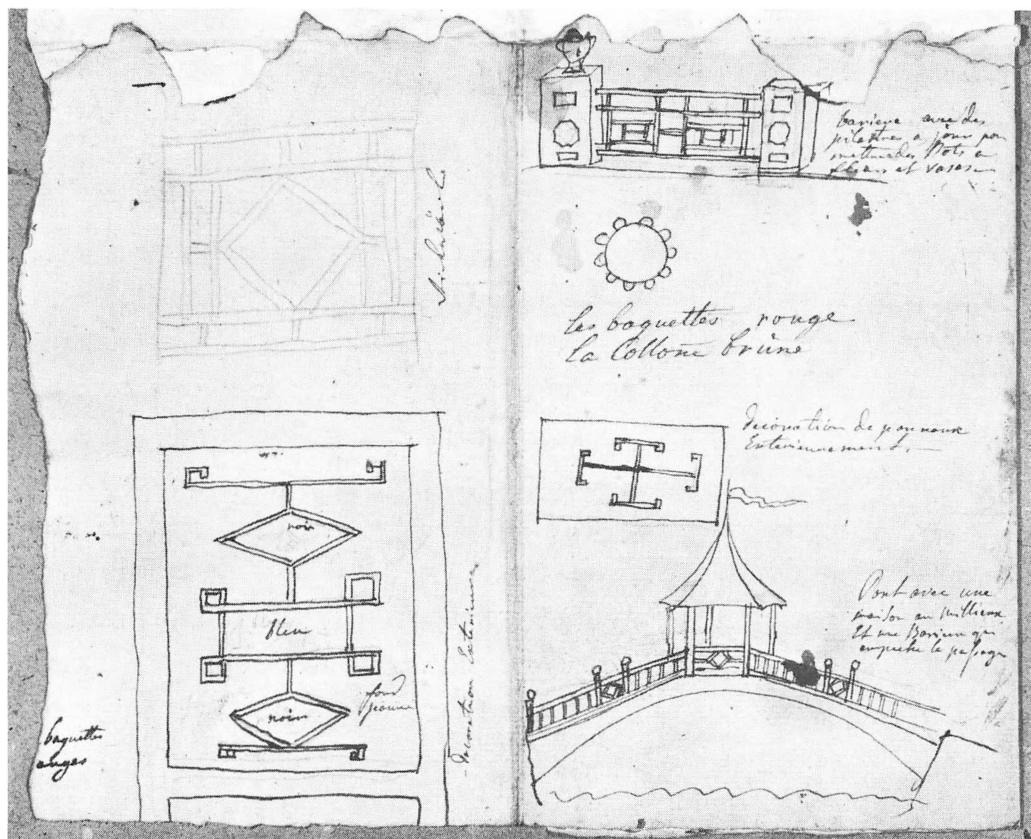 noir
bleu
noir
fond
jaune
baquettes
decoration exterieure
bariere avec des
pilastres a jour pour
mettre des Pots a
fleurs et vases
les baquettes rouge
la Collone brûne
decoration de panneaux
Exterieurement
Pont avec une
maison au millieux
Et une Bariere qui
empeche le passage